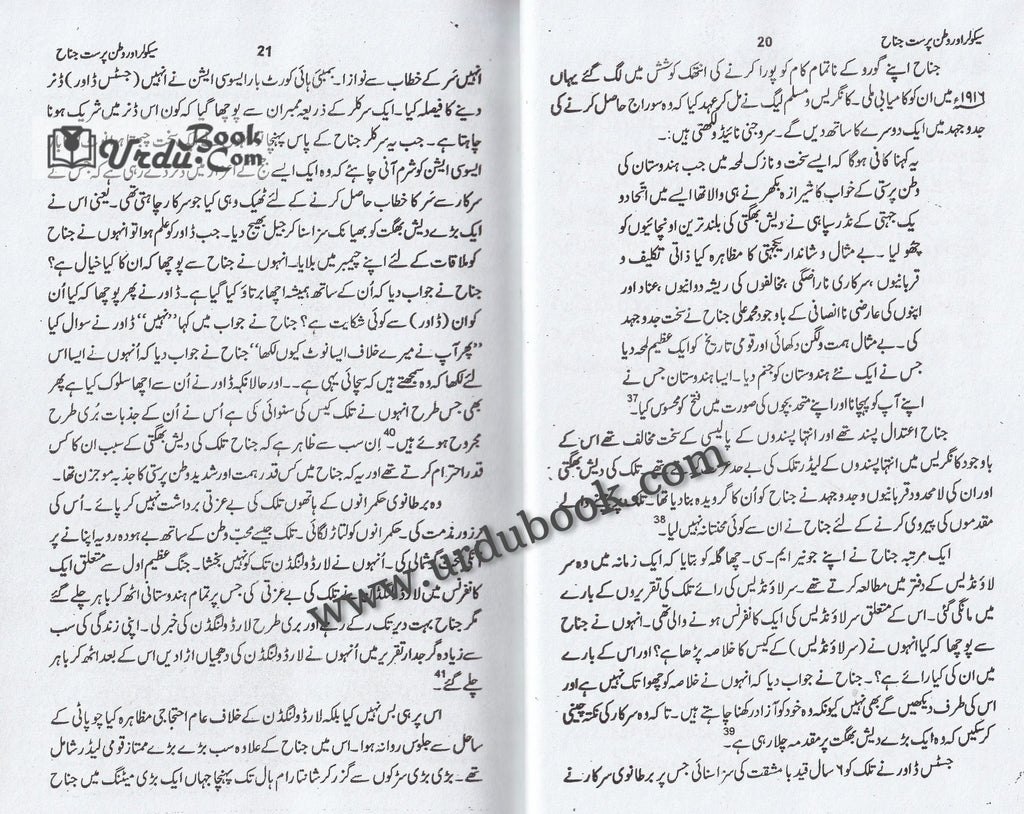 سیکولر اور وطن پرست جناح
20
جناح اپنے گورو کے ناتمام کام کو پورا کرنے کی انتھک کوشش میں لگ گئے یہاں
۱۹۱۶ء میں ان کو کامیابی ملی۔ کانگریس و مسلم لیگ نے مل کر عہد کیا کہ وہ سوراج حاصل کرنے کی
جدوجہد میں ایک دوسرے کا ساتھ دیں گے۔ سروجنی نائیڈو لکھتی ہیں:۔
یہ کہنا کافی ہوگا کہ ایسے سخت و نازک لمحہ میں جب ہندوستان کی
وطن پرستی کے خواب کا شیرازہ بکھرنے ہی والا تھا ایسے میں اتحاد و
یک جہتی کے نڈر سپاہی نے دیش بھگتی کی بلند ترین اونچائیوں کو
چھو لیا۔ بے مثال و شاندار یکجہتی کا مظاہرہ کیا ذاتی تکلیف و
قربانیوں، سرکاری ناراضگی، مخالفوں کی ریشہ دوانیوں، عناد اور
اپنوں کی عارضی ناانصافی کے باوجود محمد علی جناح نے سخت جدوجہد
کی۔ بے مثال ہمت و لگن دکھائی اور قومی تاریخ کو ایک عظیم لمحہ دیا
جس نے ایک نئے ہندوستان کو جنم دیا۔ ایسا ہندوستان جس نے
اپنے آپ کو پہچانا اور اپنے متحد بچوں کی صورت میں فتح کو محسوس کیا۔37
جناح اعتدال پسند تھے اور انتہا پسندوں کے پالیسی کے سخت مخالف تھے اس کے
باوجود کانگریس میں انتہا پسندوں کے لیڈر تلک کی بے حد تھے۔ تلک کی دیش بھگتی
اور ان کی لامحدود قربانیوں و جدوجہد نے جناح کو اُن کا گرویدہ بنا دیا تھا۔
مقدموں کی پیروی کرنے کے لئے جناح نے ان سے کوئی محنتانہ نہیں لیا۔38
ایک مرتبہ جناح نے اپنے جونیر ایم۔ سی۔ چھاگلہ کو بتایا کہ ایک زمانہ میں وہ سر
لاؤنڈیس کے دفتر میں مطالعہ کرتے تھے۔ سر لاؤنڈیس کی رائے تلک کی تقریروں کے بارے
میں مانگی گئی۔ اس کے متعلق سر لاؤنڈیس کی ایک کانفرنس ہونے والی تھی۔ انہوں نے جناح
سے پوچھا کہ کیا انہوں نے (سر لاؤنڈیس) کے کیس کا خلاصہ پڑھا ہے؟ اور اس کے بارے
میں ان کی کیا رائے ہے؟۔ جناح نے جواب دیا کہ انہوں نے خلاصہ کو چھوا تک نہیں ہے اور
اس کی طرف دیکھیں گے بھی نہیں کیونکہ وہ خود کو آزاد رکھنا چاہتے ہیں۔ تاکہ وہ سرکار کی نکتہ چینی
کر سکیں کہ وہ ایک بڑے دیش بھگت پر مقدمہ چلا رہی ہے۔39
جسٹس ڈاور نے تلک کو ۶ سال قید بامشقت کی سزا سنائی جس پر برطانوی سرکار نے
سیکولر اور وطن پرست جناح
21
انہیں سَر کے خطاب سے نوازا۔ بمبئی ہائی کورٹ بار ایسوسی ایشن نے انہیں (جسٹس ڈاور) ڈنر
دینے کا فیصلہ کیا۔ ایک سرکلر کے ذریعہ ممبران سے پوچھا گیا کہ کون اس ڈنر میں شریک ہونا
چاہتا ہے۔ جب یہ سرکلر جناح کے پاس پہنچا
ایسوسی ایشن کو شرم آنی چاہئے کہ وہ ایک ایسے
سرکار سے سَر کا خطاب حاصل کرنے کے لئے ٹھیک وہی کیا جو سرکار چاہتی تھی۔ یعنی اس نے
ایک بڑے دیش بھگت کو بھیانک سزا سنا کر جیل بھیج دیا۔ جب ڈاور کو علم ہوا تو انہوں نے جناح
کو ملاقات کے لئے اپنے چیمبر میں بلایا۔ انہوں نے جناح سے پوچھا کہ ان کا کیا خیال ہے؟
جناح نے جواب دیا کہ اُن کے ساتھ ہمیشہ اچھا برتاؤ کیا گیا ہے۔ ڈاور نے پھر پوچھا کہ کیا اُن
کو ان (ڈاور) سے کوئی شکایت ہے؟ جناح نے جواب میں کہا ”نہیں“ ڈاور نے سوال کیا
”پھر آپ نے میرے خلاف ایسا نوٹ کیوں لکھا“ جناح نے جواب دیا کہ اُنہوں نے ایسا اس
لئے لکھا کہ وہ سمجھتے ہیں کہ سچائی یہی ہے۔۔ اور حالانکہ ڈاور نے اُن سے اچھا سلوک کیا ہے پھر
بھی جس طرح انہوں نے تلک کیس کی سنوائی کی ہے اُس نے اُن کے جذبات بُری طرح
مجروح ہوئے ہیں۔40 اِن سب سے ظاہر ہے کہ جناح تلک کی دیش بھگتی کے سبب ان کا کس
قدر احترام کرتے تھے اور یہ کہ جناح میں کس قدر ہمت اور شدید وطن پرستی کا جذبہ موجزن تھا۔
وہ برطانوی حکمرانوں کے ہاتھوں تلک کی بے عزتی برداشت نہیں کر پائے۔ اُس کی
پُرزور مذمت کی۔ حکمرانوں کو لتاڑ لگائی۔ تلک جیسے محبّ وطن کے ساتھ بے ہودہ رویہ اپنانے پر
کی۔ اُنہوں نے لارڈ ولنگڈن تک کو نہیں بخشا۔ جنگ عظیم اول سے متعلق ایک
کانفرنس میں لارڈ ولنگڈن نے تلک کی بے عزتی کی جس پر تمام ہندوستانی اٹھ کر باہر چلے گئے
مگر جناح بہت دیر تک رکے رہے اور بری طرح لارڈ ولنگڈن کی خبر لی۔ اپنی زندگی کی سب
سے زیادہ گرجدار تقریر میں اُنہوں نے لارڈ ولنگڈن کی دھجیاں اڑا دیں اس کے بعد اٹھ کر باہر
چلے گئے۔41
اس پر ہی بس نہیں کیا بلکہ لارڈ ولنگڈن کے خلاف عام احتجاجی مظاہرہ کیا چوپاٹی کے
ساحل سے جلوس روانہ ہوا۔ اس میں جناح کے علاوہ سب بڑے بڑے ممتاز قومی لیڈر شامل
تھے۔ بڑی بڑی سڑکوں سے گزر کر شانتا رام ہال تک پہنچا جہاں ایک بڑی میٹنگ میں جناح
Book
Urdu.Com
www.urdubook.com